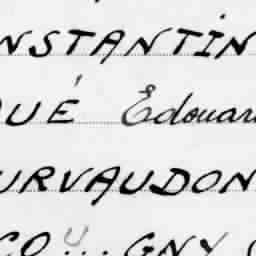 NSTANTIN
UÉ Edouar
URVAUDON
CO... GNY